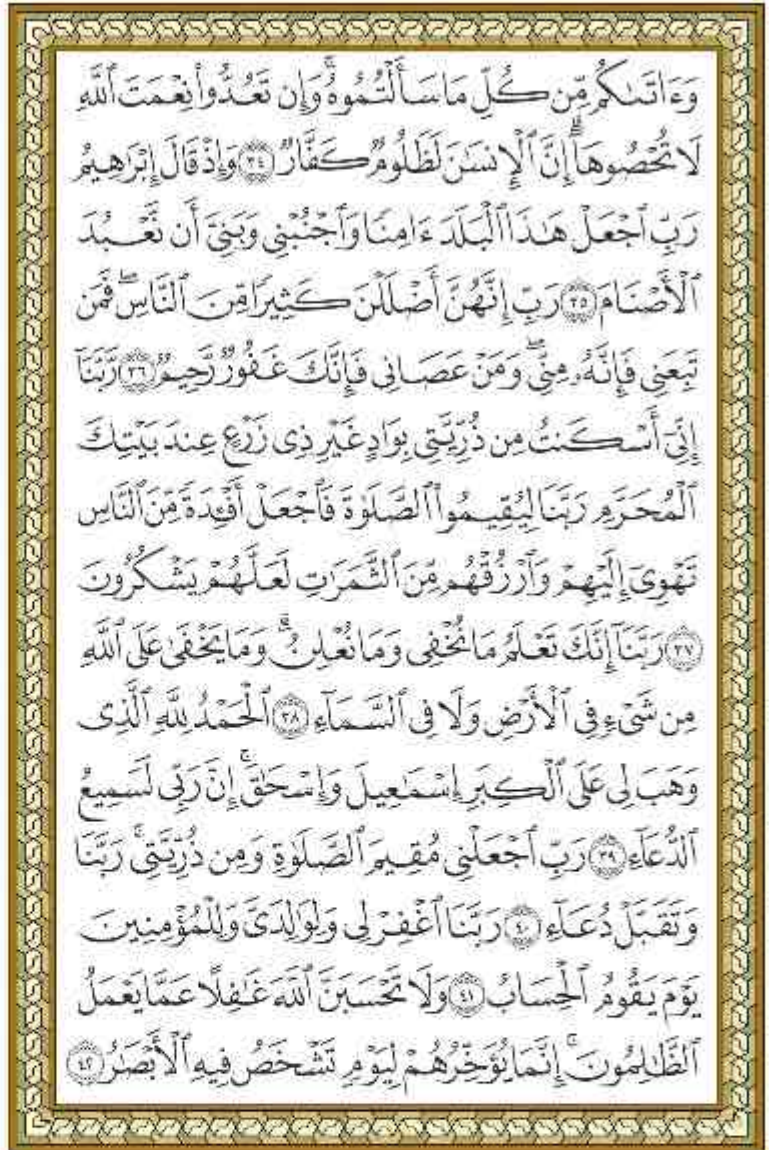 وَءَاتَىٰكُم مِّن كُلِّ مَا سَأَلْتُمُوهُ ۚ وَإِن تَعُدُّوا۟ نِعْمَتَ ٱللَّهِ
لَا تُحْصُوهَآ ۗ إِنَّ ٱلْإِنسَـٰنَ لَظَلُومٌ كَفَّارٌ ﴿٣٤﴾ وَإِذْ قَالَ إِبْرَٰهِيمُ
رَبِّ ٱجْعَلْ هَـٰذَا ٱلْبَلَدَ ءَامِنًا وَٱجْنُبْنِى وَبَنِىَّ أَن نَّعْبُدَ
ٱلْأَصْنَامَ ﴿٣٥﴾ رَبِّ إِنَّهُنَّ أَضْلَلْنَ كَثِيرًا مِّنَ ٱلنَّاسِ ۖ فَمَن
تَبِعَنِى فَإِنَّهُۥ مِنِّى ۖ وَمَنْ عَصَانِى فَإِنَّكَ غَفُورٌ رَّحِيمٌ ﴿٣٦﴾ رَّبَّنَآ
إِنِّىٓ أَسْكَنتُ مِن ذُرِّيَّتِى بِوَادٍ غَيْرِ ذِى زَرْعٍ عِندَ بَيْتِكَ
ٱلْمُحَرَّمِ رَبَّنَا لِيُقِيمُوا۟ ٱلصَّلَوٰةَ فَٱجْعَلْ أَفْـِٔدَةً مِّنَ ٱلنَّاسِ
تَهْوِىٓ إِلَيْهِمْ وَٱرْزُقْهُم مِّنَ ٱلثَّمَرَٰتِ لَعَلَّهُمْ يَشْكُرُونَ
﴿٣٧﴾ رَبَّنَآ إِنَّكَ تَعْلَمُ مَا نُخْفِى وَمَا نُعْلِنُ ۗ وَمَا يَخْفَىٰ عَلَى ٱللَّهِ
مِن شَىْءٍ فِى ٱلْأَرْضِ وَلَا فِى ٱلسَّمَآءِ ﴿٣٨﴾ ٱلْحَمْدُ لِلَّهِ ٱلَّذِى
وَهَبَ لِى عَلَى ٱلْكِبَرِ إِسْمَـٰعِيلَ وَإِسْحَـٰقَ ۚ إِنَّ رَبِّى لَسَمِيعُ
ٱلدُّعَآءِ ﴿٣٩﴾ رَبِّ ٱجْعَلْنِى مُقِيمَ ٱلصَّلَوٰةِ وَمِن ذُرِّيَّتِى ۚ رَبَّنَا
وَتَقَبَّلْ دُعَآءِ ﴿٤٠﴾ رَبَّنَا ٱغْفِرْ لِى وَلِوَٰلِدَىَّ وَلِلْمُؤْمِنِينَ
يَوْمَ يَقُومُ ٱلْحِسَابُ ﴿٤١﴾ وَلَا تَحْسَبَنَّ ٱللَّهَ غَـٰفِلًا عَمَّا يَعْمَلُ
ٱلظَّـٰلِمُونَ ۚ إِنَّمَا يُؤَخِّرُهُمْ لِيَوْمٍ تَشْخَصُ فِيهِ ٱلْأَبْصَـٰرُ ﴿٤٢﴾